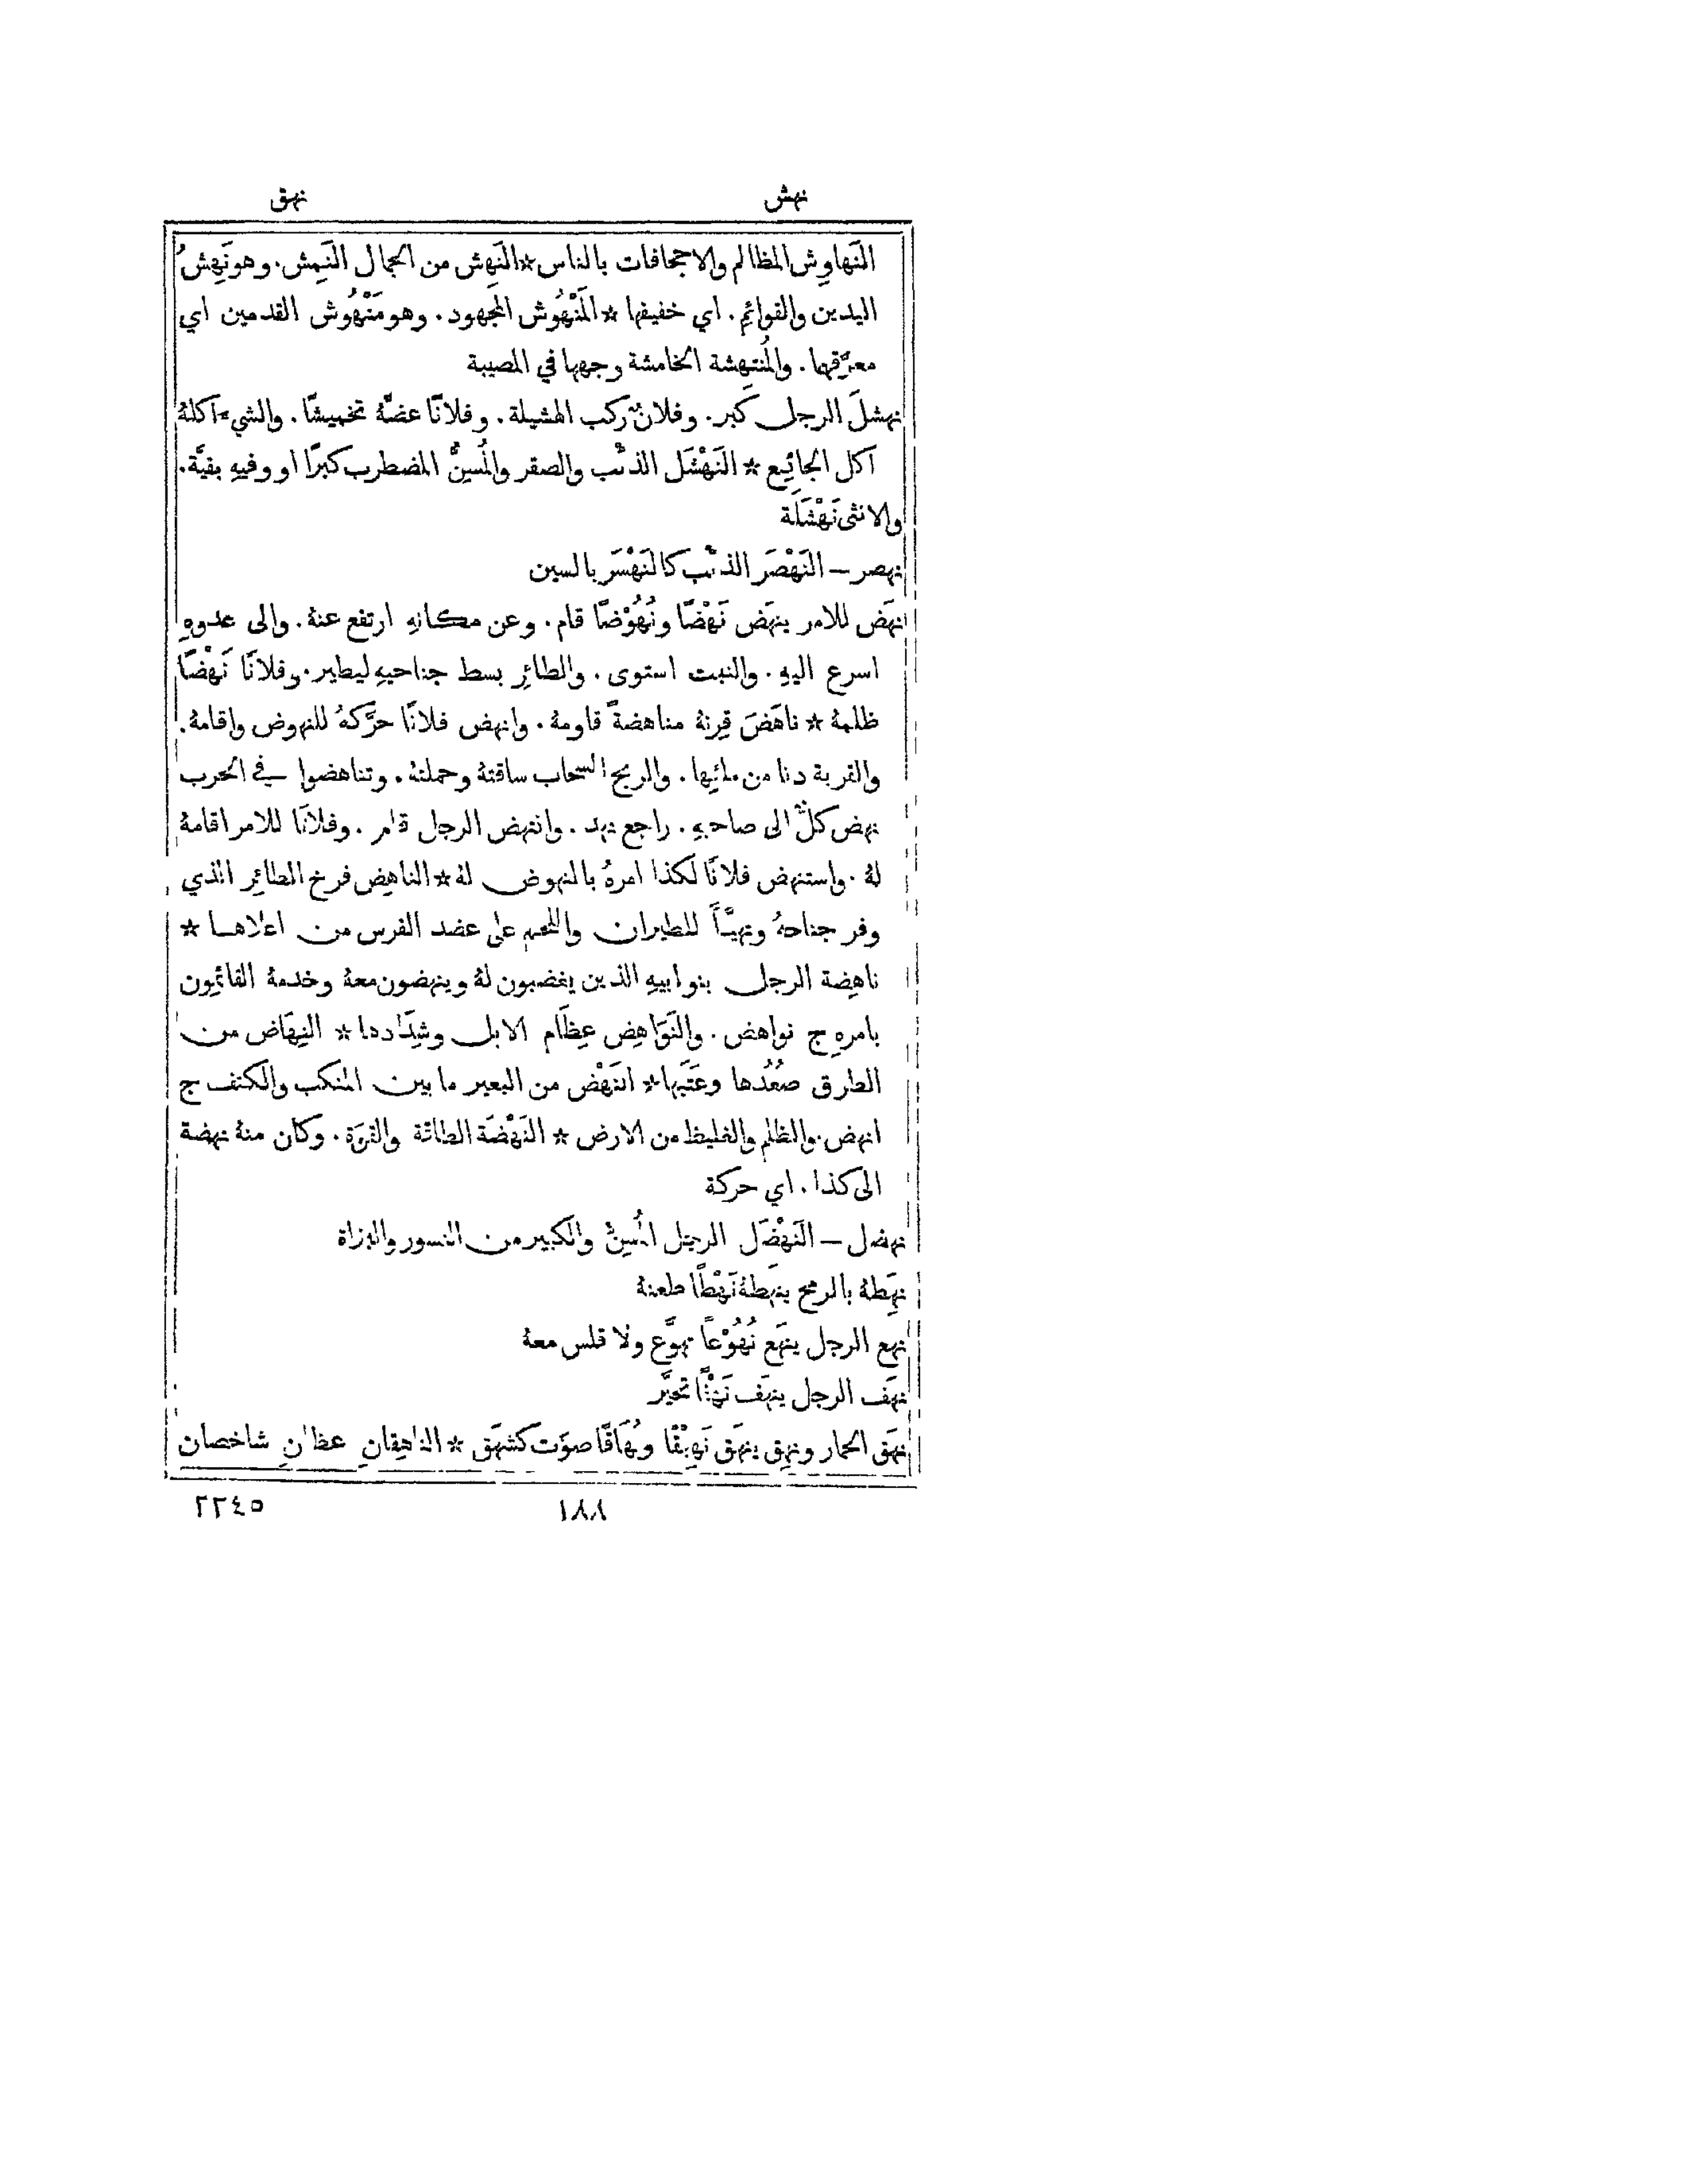 نهش نهق
النَهاوِش المظالم والاجحافات بالناس * النَهِش من الجمال النَمِش. وهو نَهِشُ
اليدين والقوائمِ. اي خفيفها * المَنْهُوش المجهود. وهو مَنْهُوش القدمين اي
معرَّقهما. والمُنتهِشة الخامشة وجهها في المصيبة
نهشلَ الرجل كَبِر. وفلانٌ ركب الهشيلة. وفلانًا عضَّهُ تخميشًا. والشيءَ اكلهُ
اكل الجائِع * النَهْشَل الذئْب والصقر والمُسِنُّ المضطرب كبرًا او وفيهِ بقيَّة.
والانثى نَهْشَلَة
نهصر – النَهْصَر الذئْب كالنَهْسَر بالسين
نهَض للامر ينهَض نَهْضًا ونُهُوْضًا قام. وعن مكانهِ ارتفع عنهُ. والى عدوهِ
اسرع اليهِ. والنبت استوى. والطائِر بسط جناحيهِ ليطير. وفلانًا نَهْضًا
ظلمهُ * ناهَضَ قِرنهُ مناهضةً قاومهُ. وانهض فلانًا حرَّكهُ للنهوض واقامهُ.
والقربة دنا من ملئِها. والريح السحاب ساقتهُ وحملتهُ. وتناهضوا في الحرب
نهض كلٌّ الى صاحبهِ. راجع نهد. وانتهض الرجل قام. وفلانًا للامر اقامهُ
لهُ. واستنهض فلانًا لكذا امرهُ بالنهوض لهُ * الناهِض فرخ الطائِر الذي
وفر جناحهُ وتهيَّأَ للطيران واللحم على عضد الفرس من اعلاها *
ناهِضة الرجل بنو ابيهِ الذين يغضبون لهُ وينهضون معهُ وخدمهُ القائمون
بامرهِ ج نواهض. والنَوَاهِض عِظَام الابل وشِدَادها * النِهَاض من
الطرق صُعُدُها وعَتَبها * النَهْض من البعير ما بين المنكب والكتف ج
انهض. والظلم والغليظ من الارض * النَهْضَة الطاقة والقوَّة. وكان منهُ نهضة
الى كذا. اي حركة
نهضل – النَهْضَل الرجل المُسِنُّ والكبير من النسور والبزاة
نهَطهُ بالرمح ينهَطهُ نَهْطًا طعنهُ
نهع الرجل ينهَع نُهُوْعًا تهوَّع ولا قلس معهُ
نهَف الرجل ينهَف نَهْفًا تحيَّر
نهَق الحمار ونهِق ينهَق نَهِيْقًا ونُهَاقًا صوَّت كشهَق * الناهِقانِ عظمانِ شاخصان
١٨٨ ٢٢٤٥